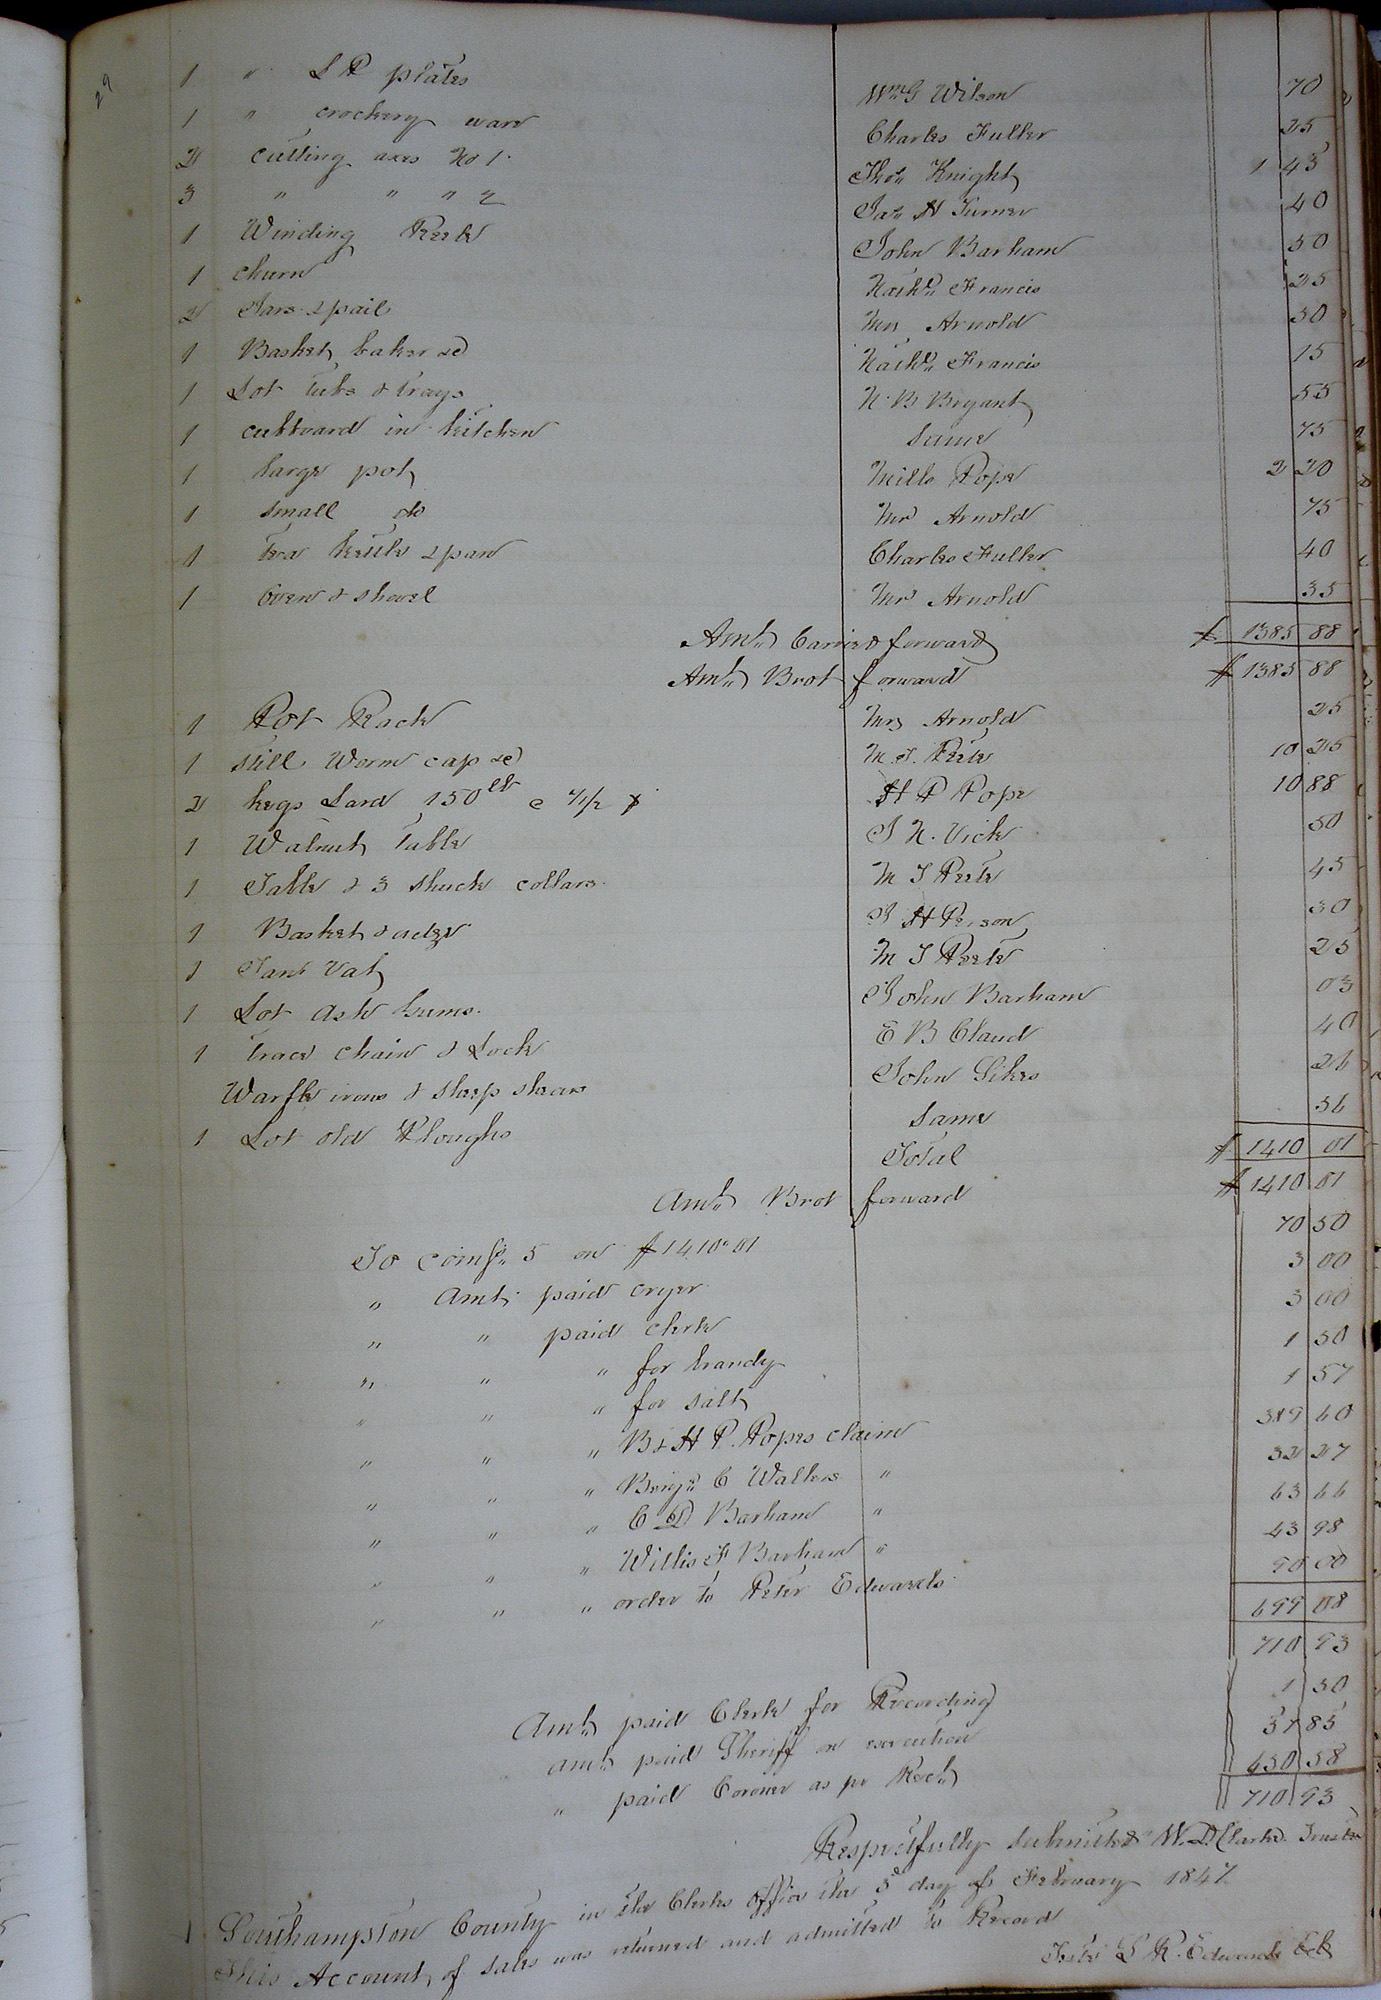 29
1 " L P plates Wm G Wilson 70
1 " crockery ware Charles Fuller 25
2 cutting axes No 1. Thos Knight 1 43
3 " " " 2 Jas H Turner 40
1 Winding Reele John Barham 50
1 churn Nathl Francis 25
2 Jars & pail Mrs Arnold 50
1 Basket, baker &c Nathl Francis 15
1 Lot tubs & trays N. B Bryant 55
1 cubboard in kitchen same 75
1 large pot Mills Pope 2 20
1 small do Mrs Arnold 75
1 tea kettle & pan Charles Fuller 40
1 Oven & shovel Mrs Arnold 35
Amt Carried forward $ 1385 88
Amt Brot forward $ 1385 88
1 Pot Rack Mrs Arnold 25
1 still Worm cap &c M. T. Peete 10 25
2 kegs Lard 150 lb @ 7 1/2 H P Pope 10 88
1 Walnut Table J N. Vick 50
1 Table & 3 shuck collars. M T Peete 45
1 Basket & adze J H Person 30
1 Tan Vat M T Peete 25
1 Lot Ash Gums. John Barham 03
1 Trace chain & Lock E B Claud 40
Warfle irons & sheep shears John Sikes 26
1 Lot old Ploughs Same 56
Total $ 1410 01
Amt Brot forward $ 1410 01
To coms. 5 on $1410.01 70 50
" Amt. paid cryer 3 00
" " paid clerk 3 00
" " " for brandy 1 50
" " " for salt 1 57
" " " B & H P. Popes claim 389 60
" " " Benjn C Walkers " 32 27
" " " C D Barham " 63 66
" " " Willis F Barham " 43 98
" " " order to Peter Edwards 90 00
699 08
710 93
Amt paid Clerk for Recording 1 50
Amt paid Sheriff on execution 57 85
" paid Coroner as pr Rect 650 58
710 93
Respectfully submitted W. D Clarke Trustee
Southampton County in the Clerks office the 5 day of February 1847
This Account of sales was returned and admitted to Record
Teste L R. Edwards Cl